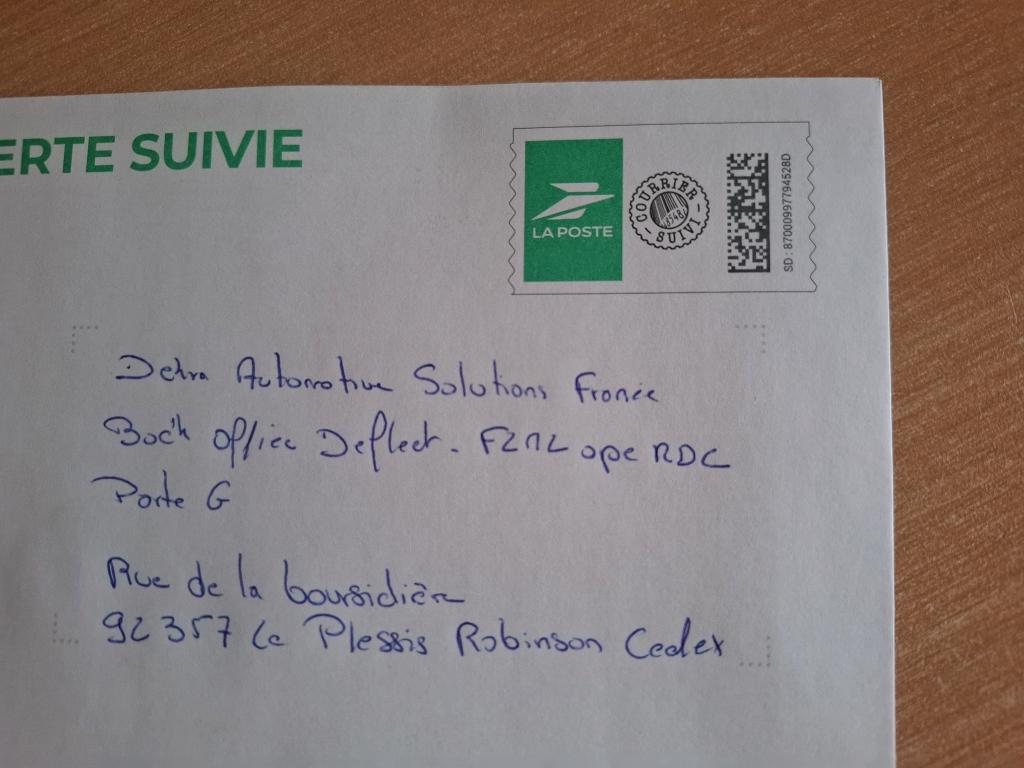 ERTE SUIVIE
LA POSTE
COURRIER
SUIVI
SD : 87000997794528D
Dekra Automotive Solutions France
Back Office Deflect. ope RDC
Porte G
Rue de la boursidière
92357 Le Plessis Robinson Cedex